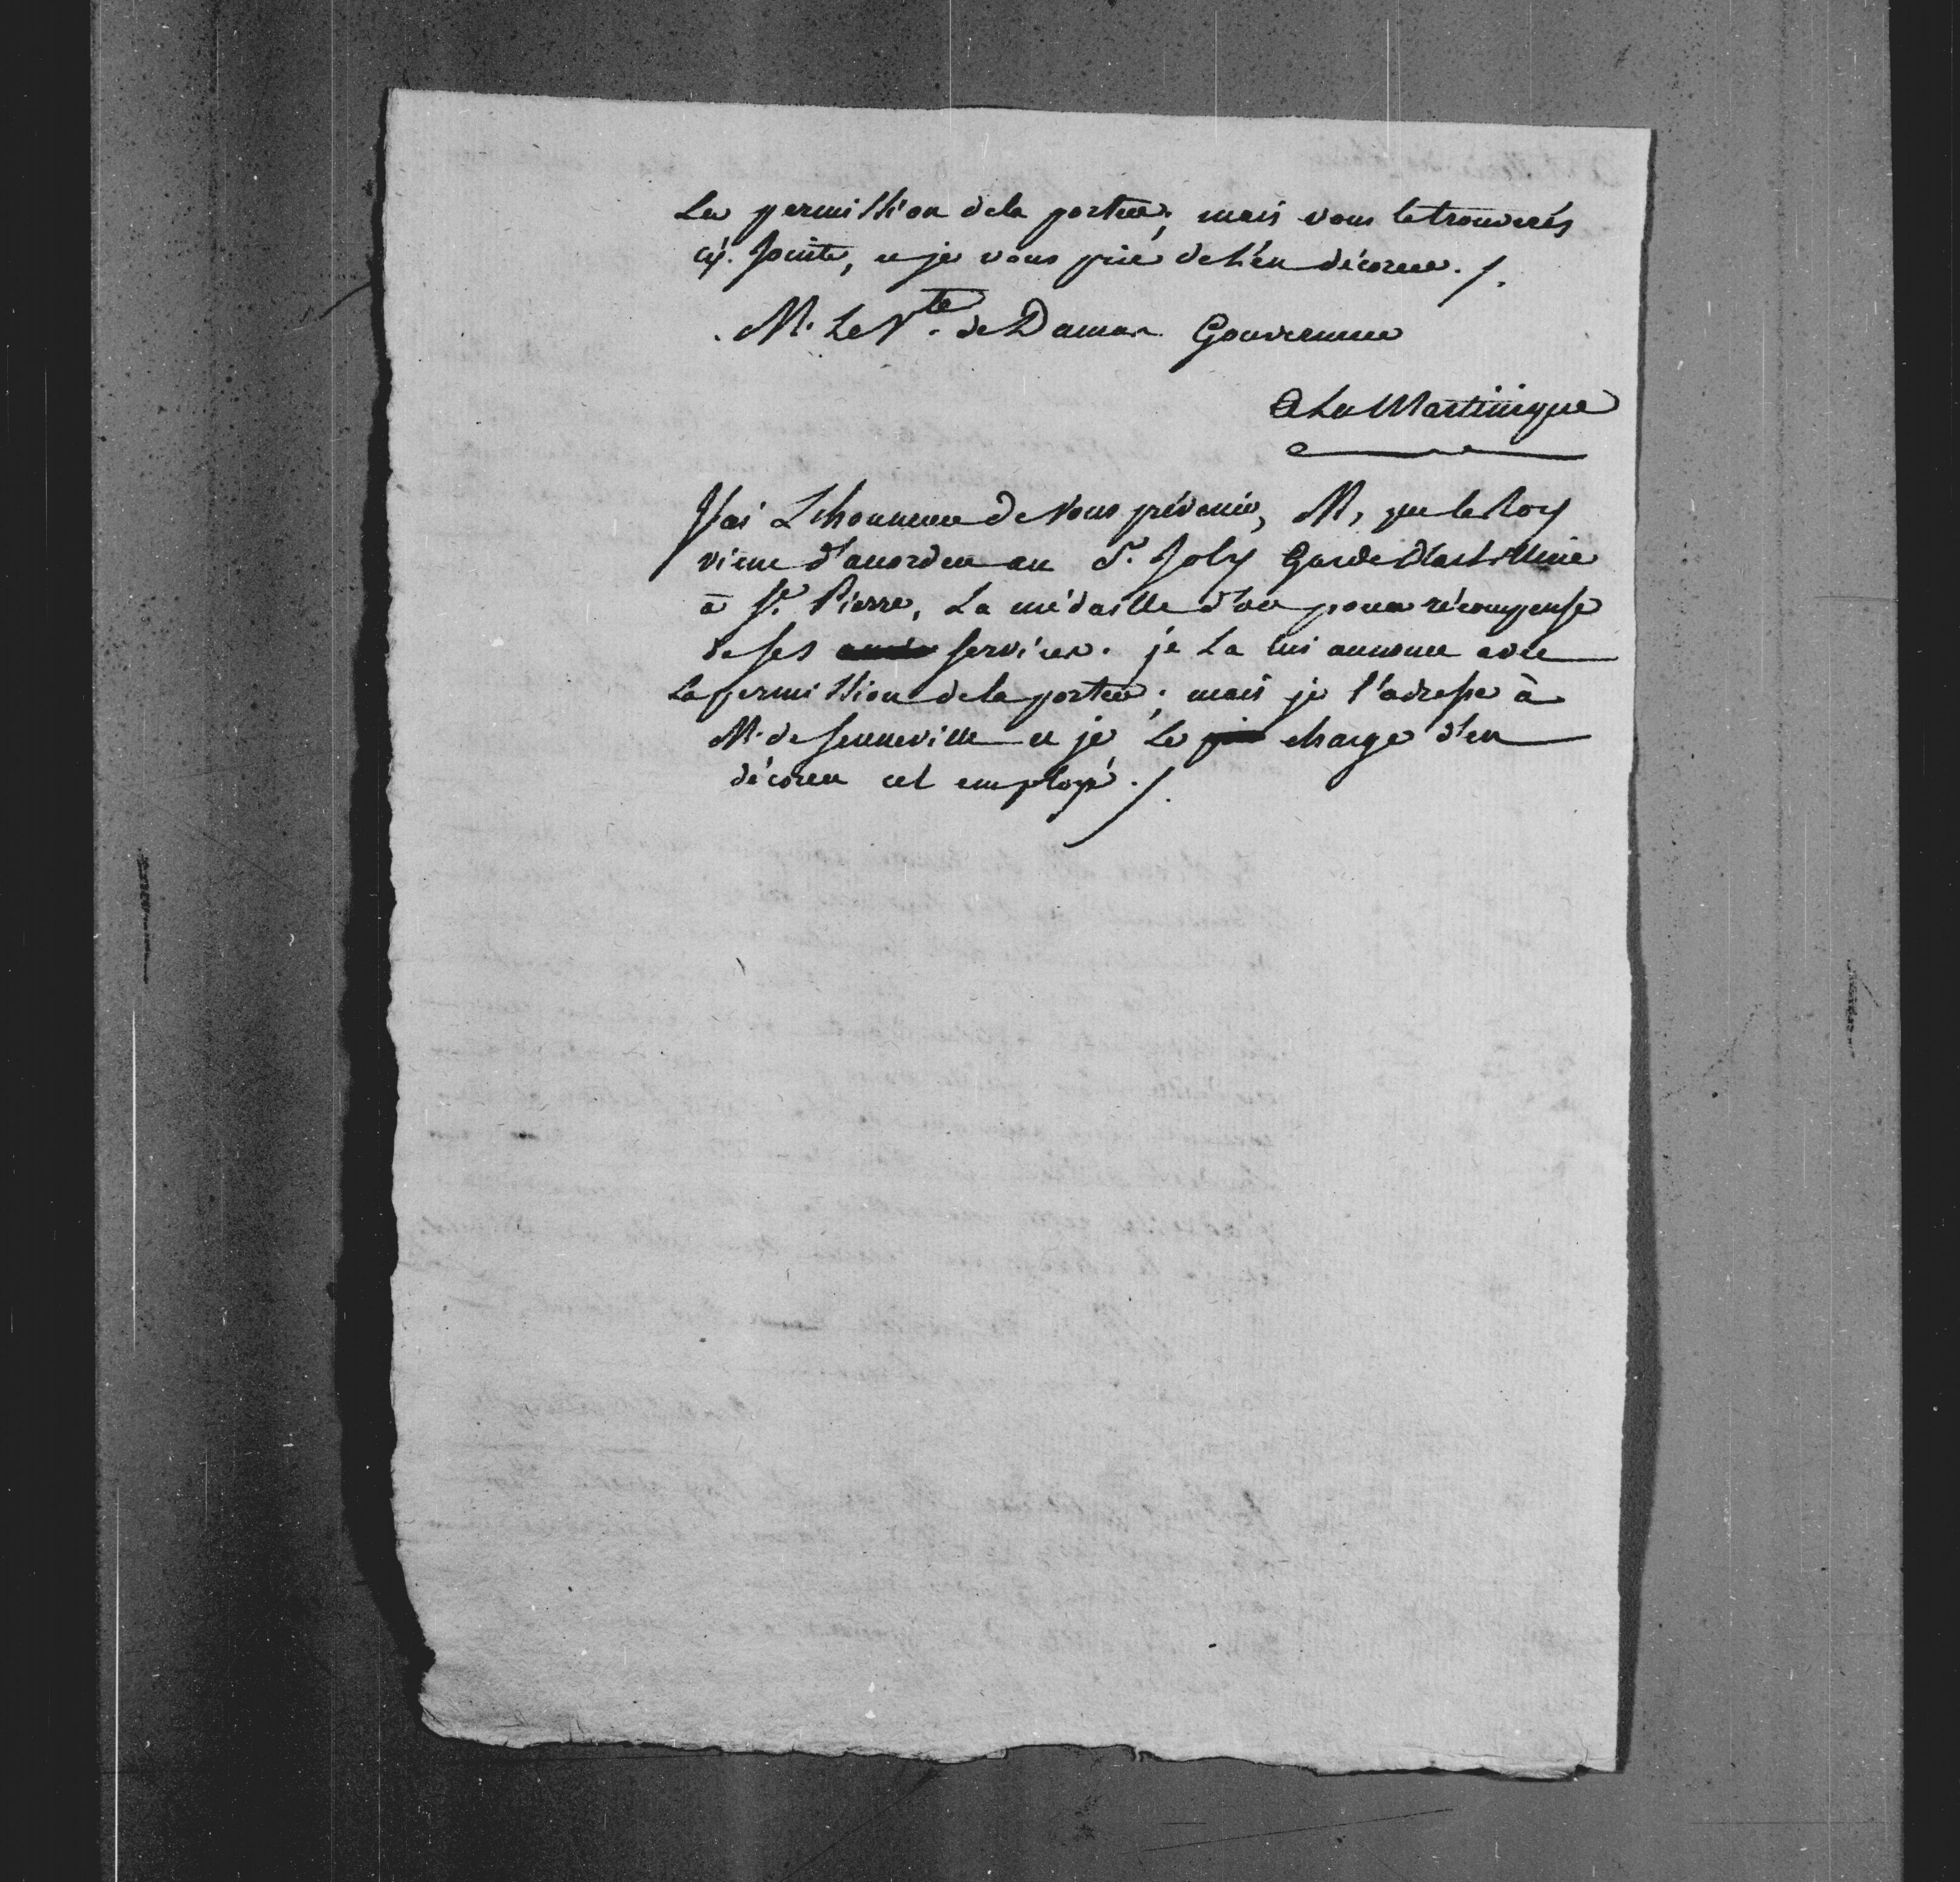 La permission de la porter; mais vous la trouverés
cy. Jointe, et je vous prie de l'en décorer./.
M. Le Vte. de Damas Gouverneur
A La Martinique
J'ai L'honneur de vous prévenir, M, que le Roy
vient d'accorder au S. Joly Garde D'artillerie
à St. Pierre, La médaille d'or pour récompense
de ses services. je La lui annonce avec
La permission de la porter; mais je l'adresse à
M. de Senneville et je Le charge d'en
décorer cet employé./.